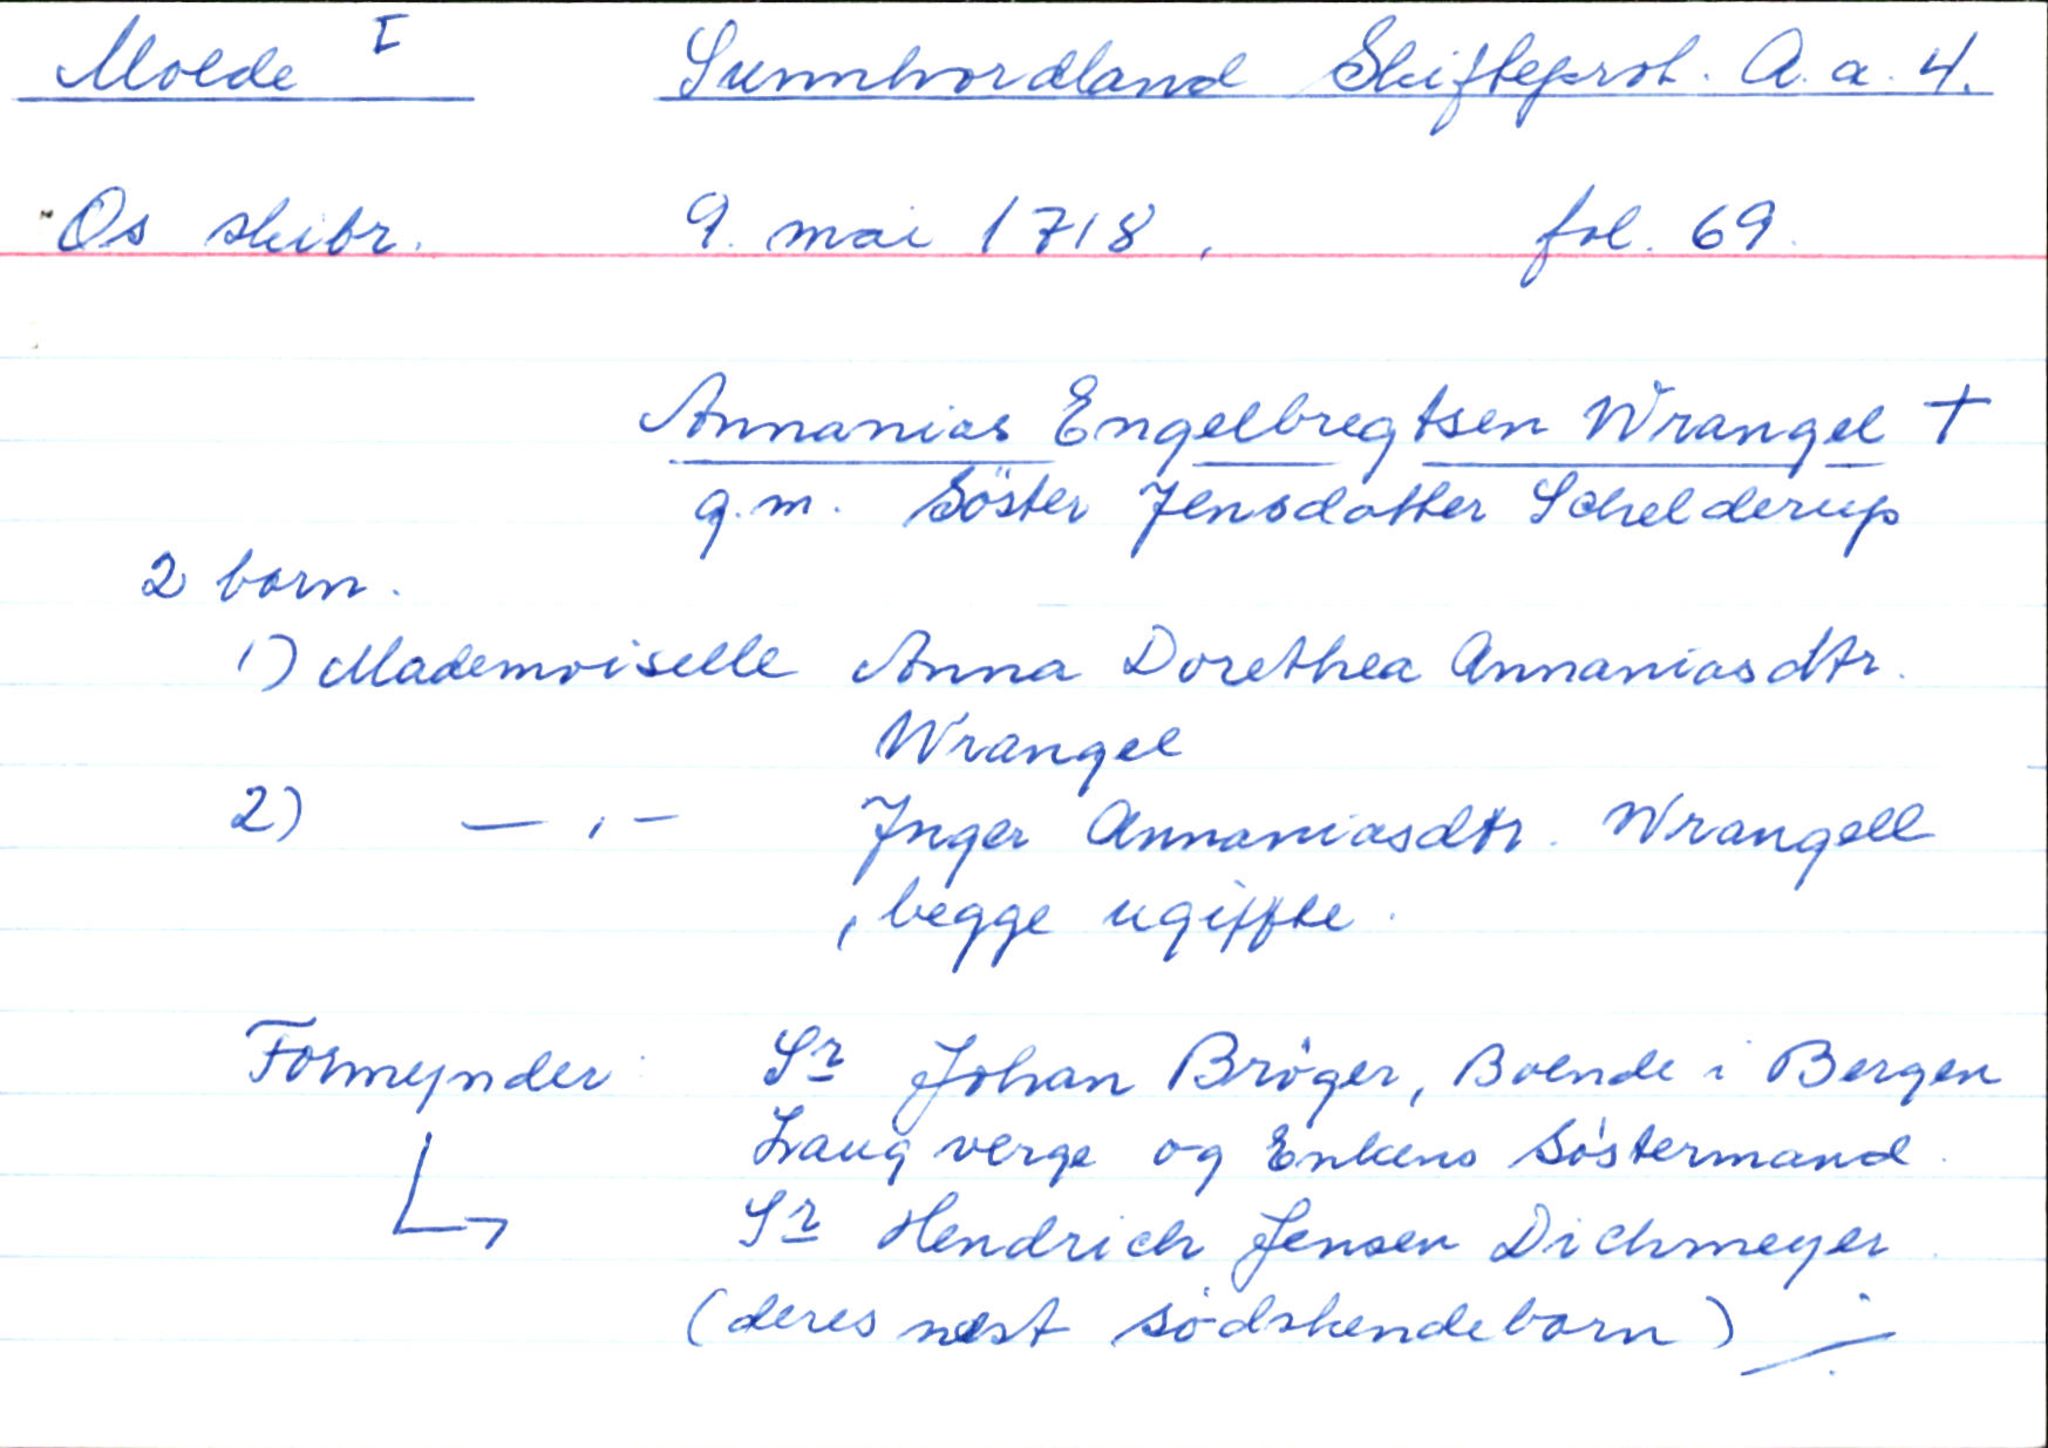 Molde I Sunnhordland Skifteprot. A. a. 4.
Os skibr. 9. mai 1718, fol. 69.
Annanias Engelbregtsen Wrangel +
g.m. Söster Jensdatter Schelderup
2 born.
1) Mademoiselle Anna Dorethea Annaniasdtr.
Wrangel
2) — , — Inger Annaniasdtr. Wrangell
, begge ugiffte.
Formynder: Sr Johan Bröger, Boende i Bergen
Laug verge og Enkens Söstermand.
Sr Hendrich Jensen Dichmeyer.
(deres næst södskendeborn)